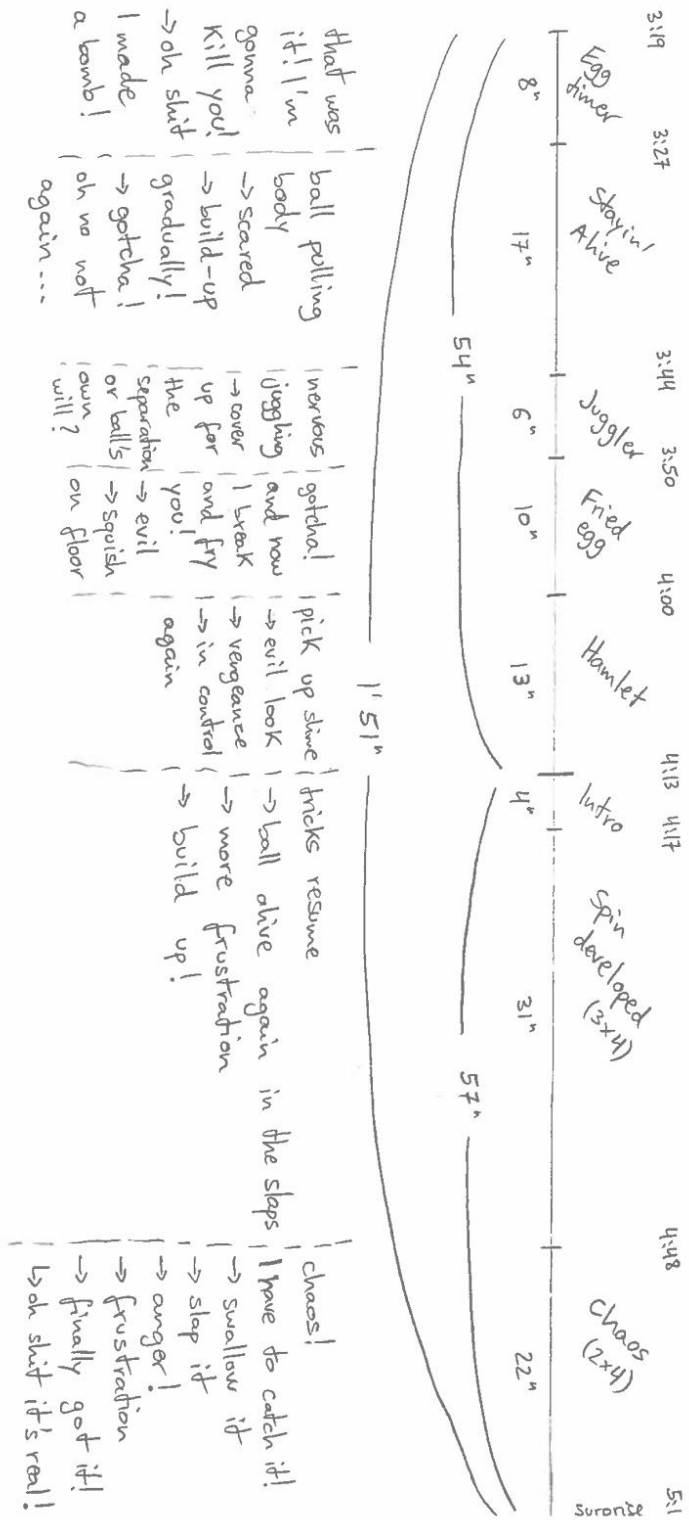 3:19 3:27 3:44 3:50 4:00 4:13 4:17 4:48 5:1
Egg
timer
Stayin'
Alive
Juggler
Fried
egg
Hamlet
Intro
Spin
developed
(3x4)
Chaos
(2x4)
surprise
8" 17" 6" 10" 13" 4" 31" 22"
54" 57"
1' 51"
that was
it! I'm
gonna
kill you!
→ oh shit
I made
a bomb!
ball pulling
body
→ scared
→ build-up
gradually!
→ gotcha!
oh no not
again...
nervous
juggling
→ cover
up for
the
separation
or ball's
own
will?
gotcha!
and now
I break
and fry
you!
→ evil
→ squish
on floor
pick up slime
→ evil look
→ vengeance
→ in control
again
tricks resume
→ ball alive again in the slaps
→ more frustration
→ build up!
chaos!
I have to catch it!
→ swallow it
→ slap it
→ anger!
→ frustration
→ finally got it!
↳ oh shit it's real!